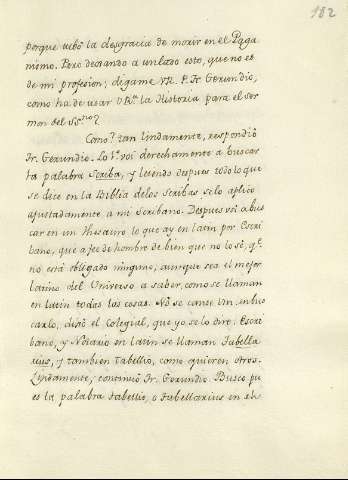 182
porque ubo la desgracia de morir en el Paga
nismo. Pero dexando a un lado esto, que no es
de mi profesion; digame VR. P. Fr. Gerundio,
como ha de usar VR.ma la Historia para el ser
mon del SSno?
Como? tan lindamente, respondió
Fr. Gerundio. Lo 1.º voi derechamente a buscar
la palabra Scriba, y leiendo despues todo lo que
se dice en la Biblia de los Scribas se lo aplico
ajustadamente a mi Scribano. Despues voi a bus
car en un Thesauro lo que ay en latin por Escri
bano, que a fee de hombre de bien que no lo sé, q.e
no está obligado ninguno, aunque sea el mejor
latino del Universo a saber, como se llaman
en latin todas las cosas. No se canse Vm. en bus
carlo, dixo el Colegial, que yo se lo diré: Escri
bano, y Notario en latin se llaman Tabella
rius, y tambien Tabellio, como quieren otros.
Lindamente, continuó Fr. Gerundio. Busco pu
es la palabra tabellio, o tabellarius en el